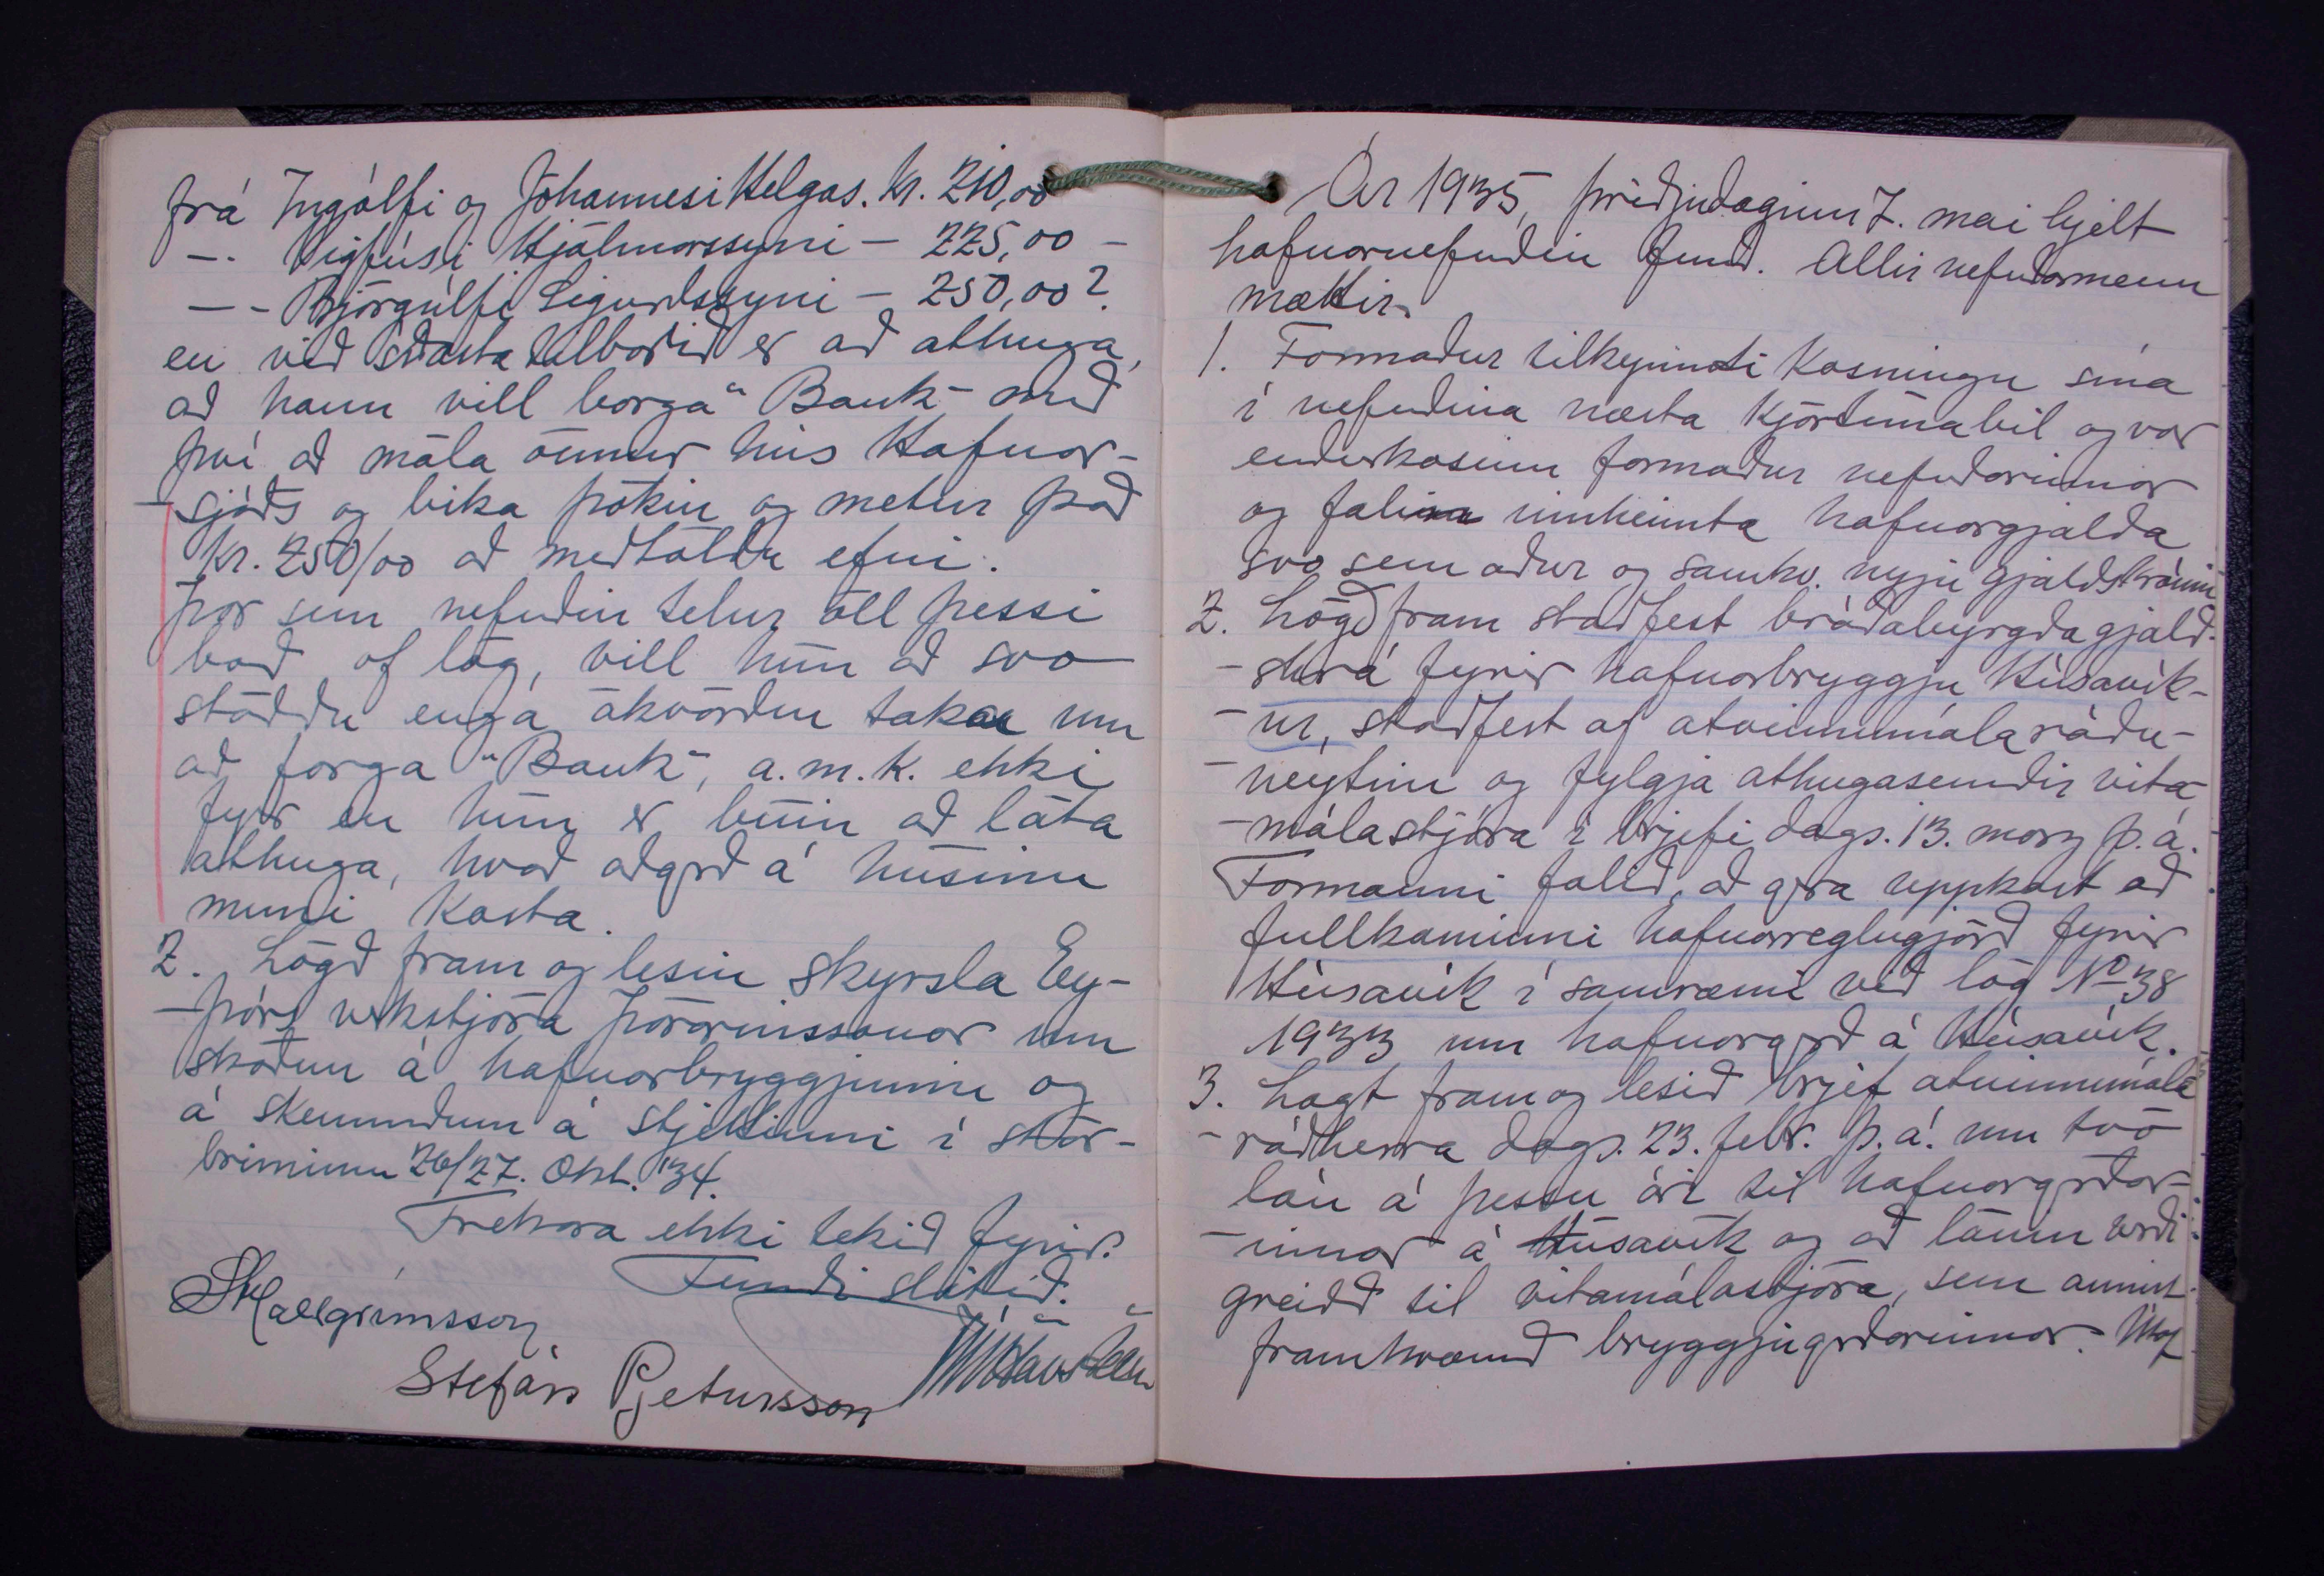 frá Ingólfi og Jóhannesi Helgas. kr. 210,00
—. Vigfúsi Hjálmarssyni — 225,00 —
— - Björgúlfi Sigurdssyni — 250,00?
en við síðasta tilboðið er að athuga,
að hann vill borga "Bauk" með
því að mála önnur hús Hafnar-
-sjóðs og bika þökin og metur það
kr. 250/00 að meðtöldu efni.
Þar sem nefndin telur öll þessi
boð of lág, vill hún að svo
stöddu enga ákvörðun taka um
að farga "Bauk", a.m.k. ekki
fyr en hún er búin að láta
athuga, hvað aðgerð á húsinu
muni kosta.
2. Lögð fram og lesin skyrsla Ey-
-þórs verkstjóra Þórarinssonar um
skoðun á hafnarbryggjunni og
á skemmdum á stjettinni í stór-
briminu 26/27. Okt. '34.
Frekara ekki tekið fyrir.
Fundi slitið.
SHallgrímsson
Stefán Pjetursson
Ár 1935, þriðjudaginn 7. mai hjelt
hafnarnefndin fund. Allir nefndarmenn
mættir.
1. Formaður tilkynnti kosningu sína
í nefndina næsta kjörtímabil og var
endurkosinn formaður nefndarinnar
og falin innheimta hafnargjalda
svo sem aður og samkv. nyju gjaldskránni
2. Lögð fram staðfest bráðabyrgðagjald-
-skrá fyrir hafnarbryggju Húsavík-
-ur, staðfest af atvinnumálaráðu-
-neytinu og fylgja athugasemdir vita-
-málastjóra í brjefi dags. 13. marz þ.á.
Formanni falið, að gera uppkast að
fullkominni hafnarreglugjörð fyrir
Húsavík í samræmi við lög No 38
1933 um hafnargerð á Húsavík.
3. Lagt fram og lesið brjef atvinnumála
-ráðherra dags. 23. febr. þ.á. um tvö
lán á þessu ári til hafnargerðar-
-innar á Húsavík og að lánin verði
greidd til vitamálastjóra, sem annist
framkvæmd bryggjugerðarinnar. Mag